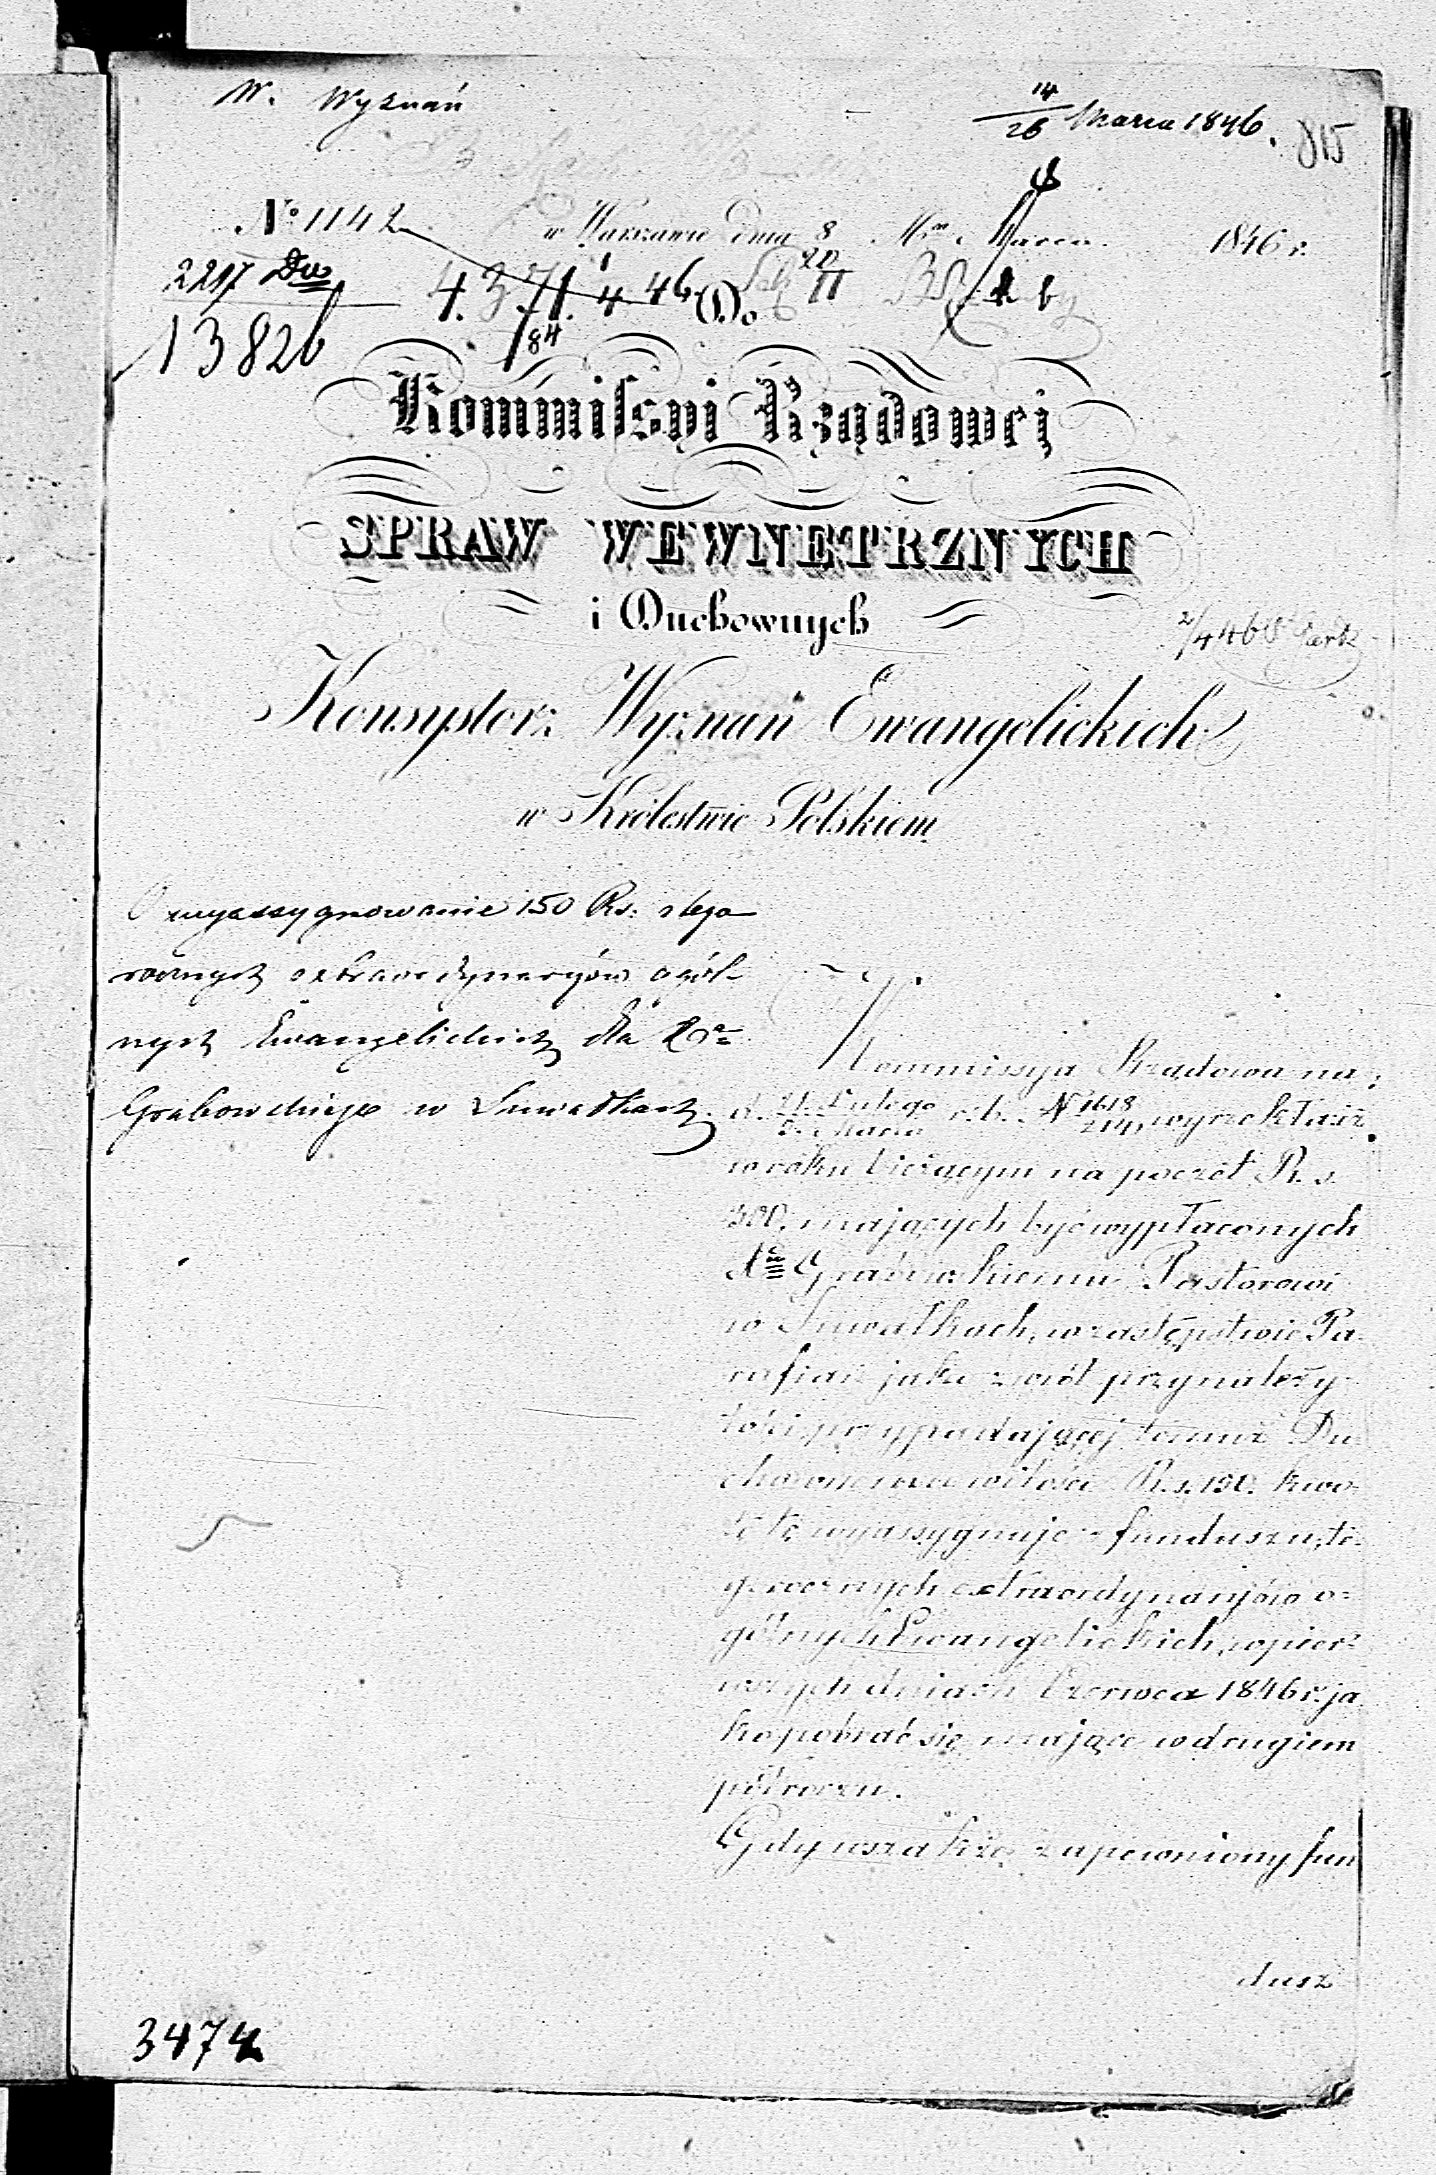 W. Wyznań
14/26 Marca 1846.
815
No 1142
w Warszawie dnia 8/20 Mca Marca 1846 r.
2217 Dw
13826
4. 371. 4 46
84
Do
Kommissyi Rządowej
SPRAW WEWNETRZNYCH
i Duchownych
2/4 46
Konsystorz Wyznań Ewangelickich
w Królestwie Polskiem
O wyassygnowanie 150 Rs. z tego
rocznych extraordynaryów ogól-
nych Ewangelickich dla Xa
Grabowskiego w Suwałkach.
Kommissyja Rządowa na
d. 21 Lutego / 5 Marca r. b. No 1618 wyrzekła iż
w roku bieżącym na poczet R. s.
300. mających być wypłaconych
Xdu Grabowskiemu Pastorowi
w Suwałkach, w zastępstwie Pa-
rafian jako zwrót przynależy-
tości przypadającej temuż Du-
chownemu w ilości R. s. 150. kwo-
tę tę wyassygnuje z funduszu te-
gorocznych extraordynaryjów o-
gólnych Ewangelickich, w pier-
wszych dniach Czerwca 1846 r. ja
ko pobrać się mające w drugiem
półroczu.
Gdy wszakże zapewniony fun
dusz
3474